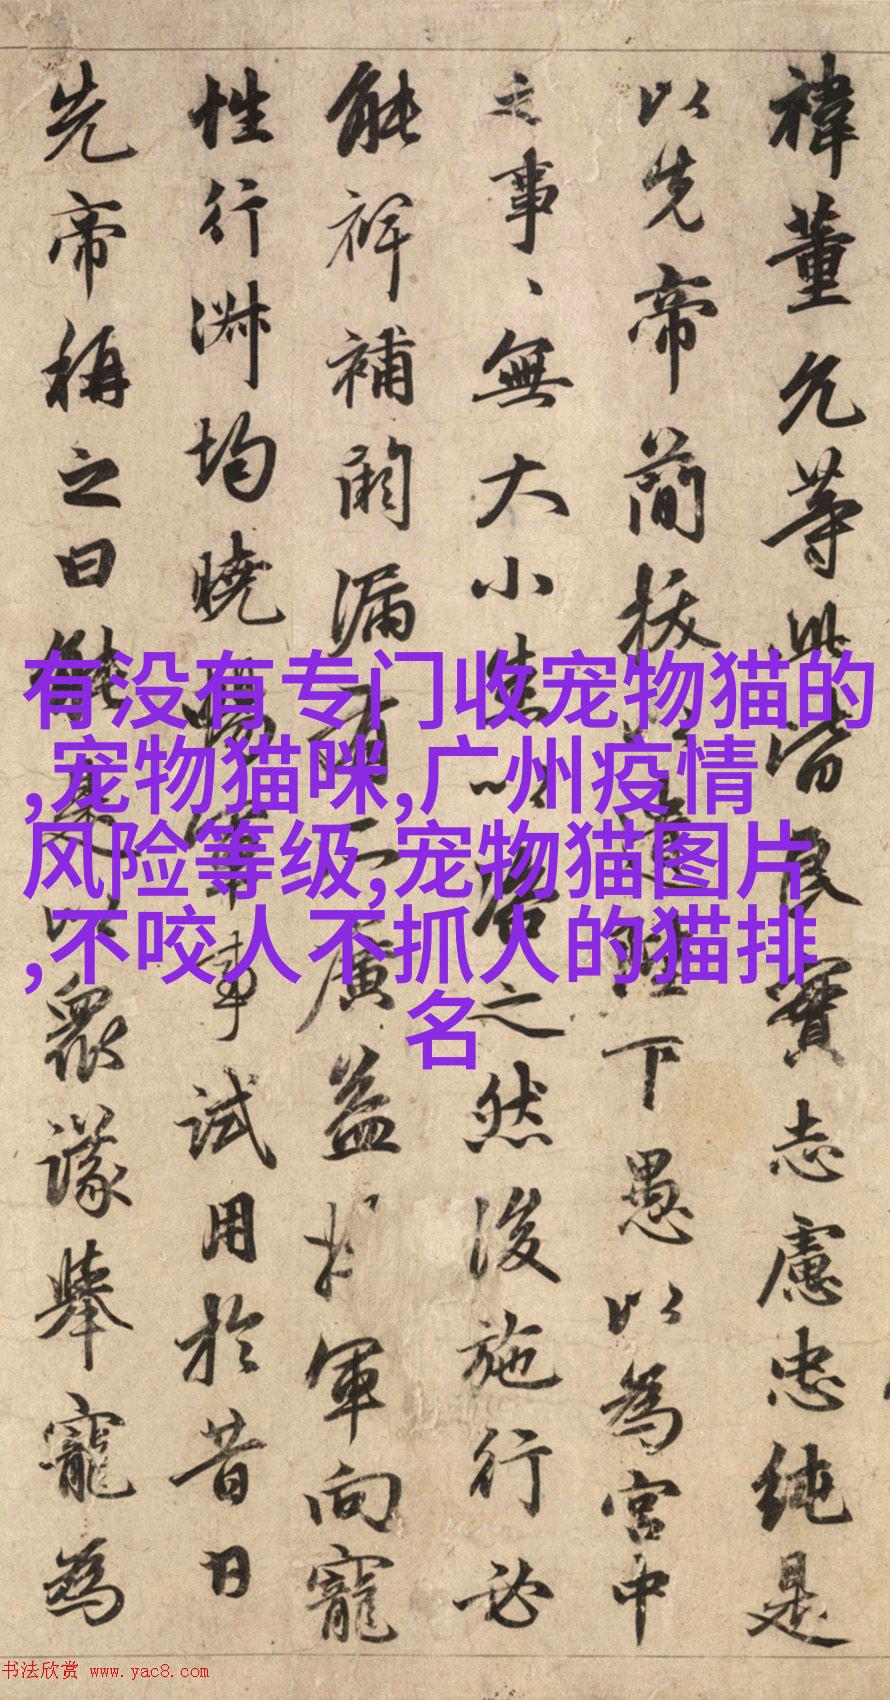 禕董允等此皆良實志慮忠純是
以先帝簡拔以遺陛下愚以為宮中
之事、無大小悉以咨之然後施行必
能裨補闕漏有所廣益將軍向寵
性行淑均曉暢軍事試用於昔日
先帝稱之曰能是以眾議舉寵為
有没有专门收宠物猫的
,宠物猫咪,广州疫情
风险等级,宠物猫图片
,不咬人不抓人的猫排
名
书法欣赏 www.yac8.com